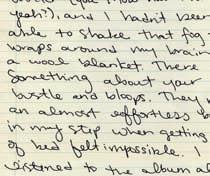 yeah?), and I hadn't been
able to shake that fog
wraps around my brain
a wool blanket. There
Something about your
bustle and bloops. They
an almost effortless b
in my step when getting
of bed felt impossible.
listened to the album al